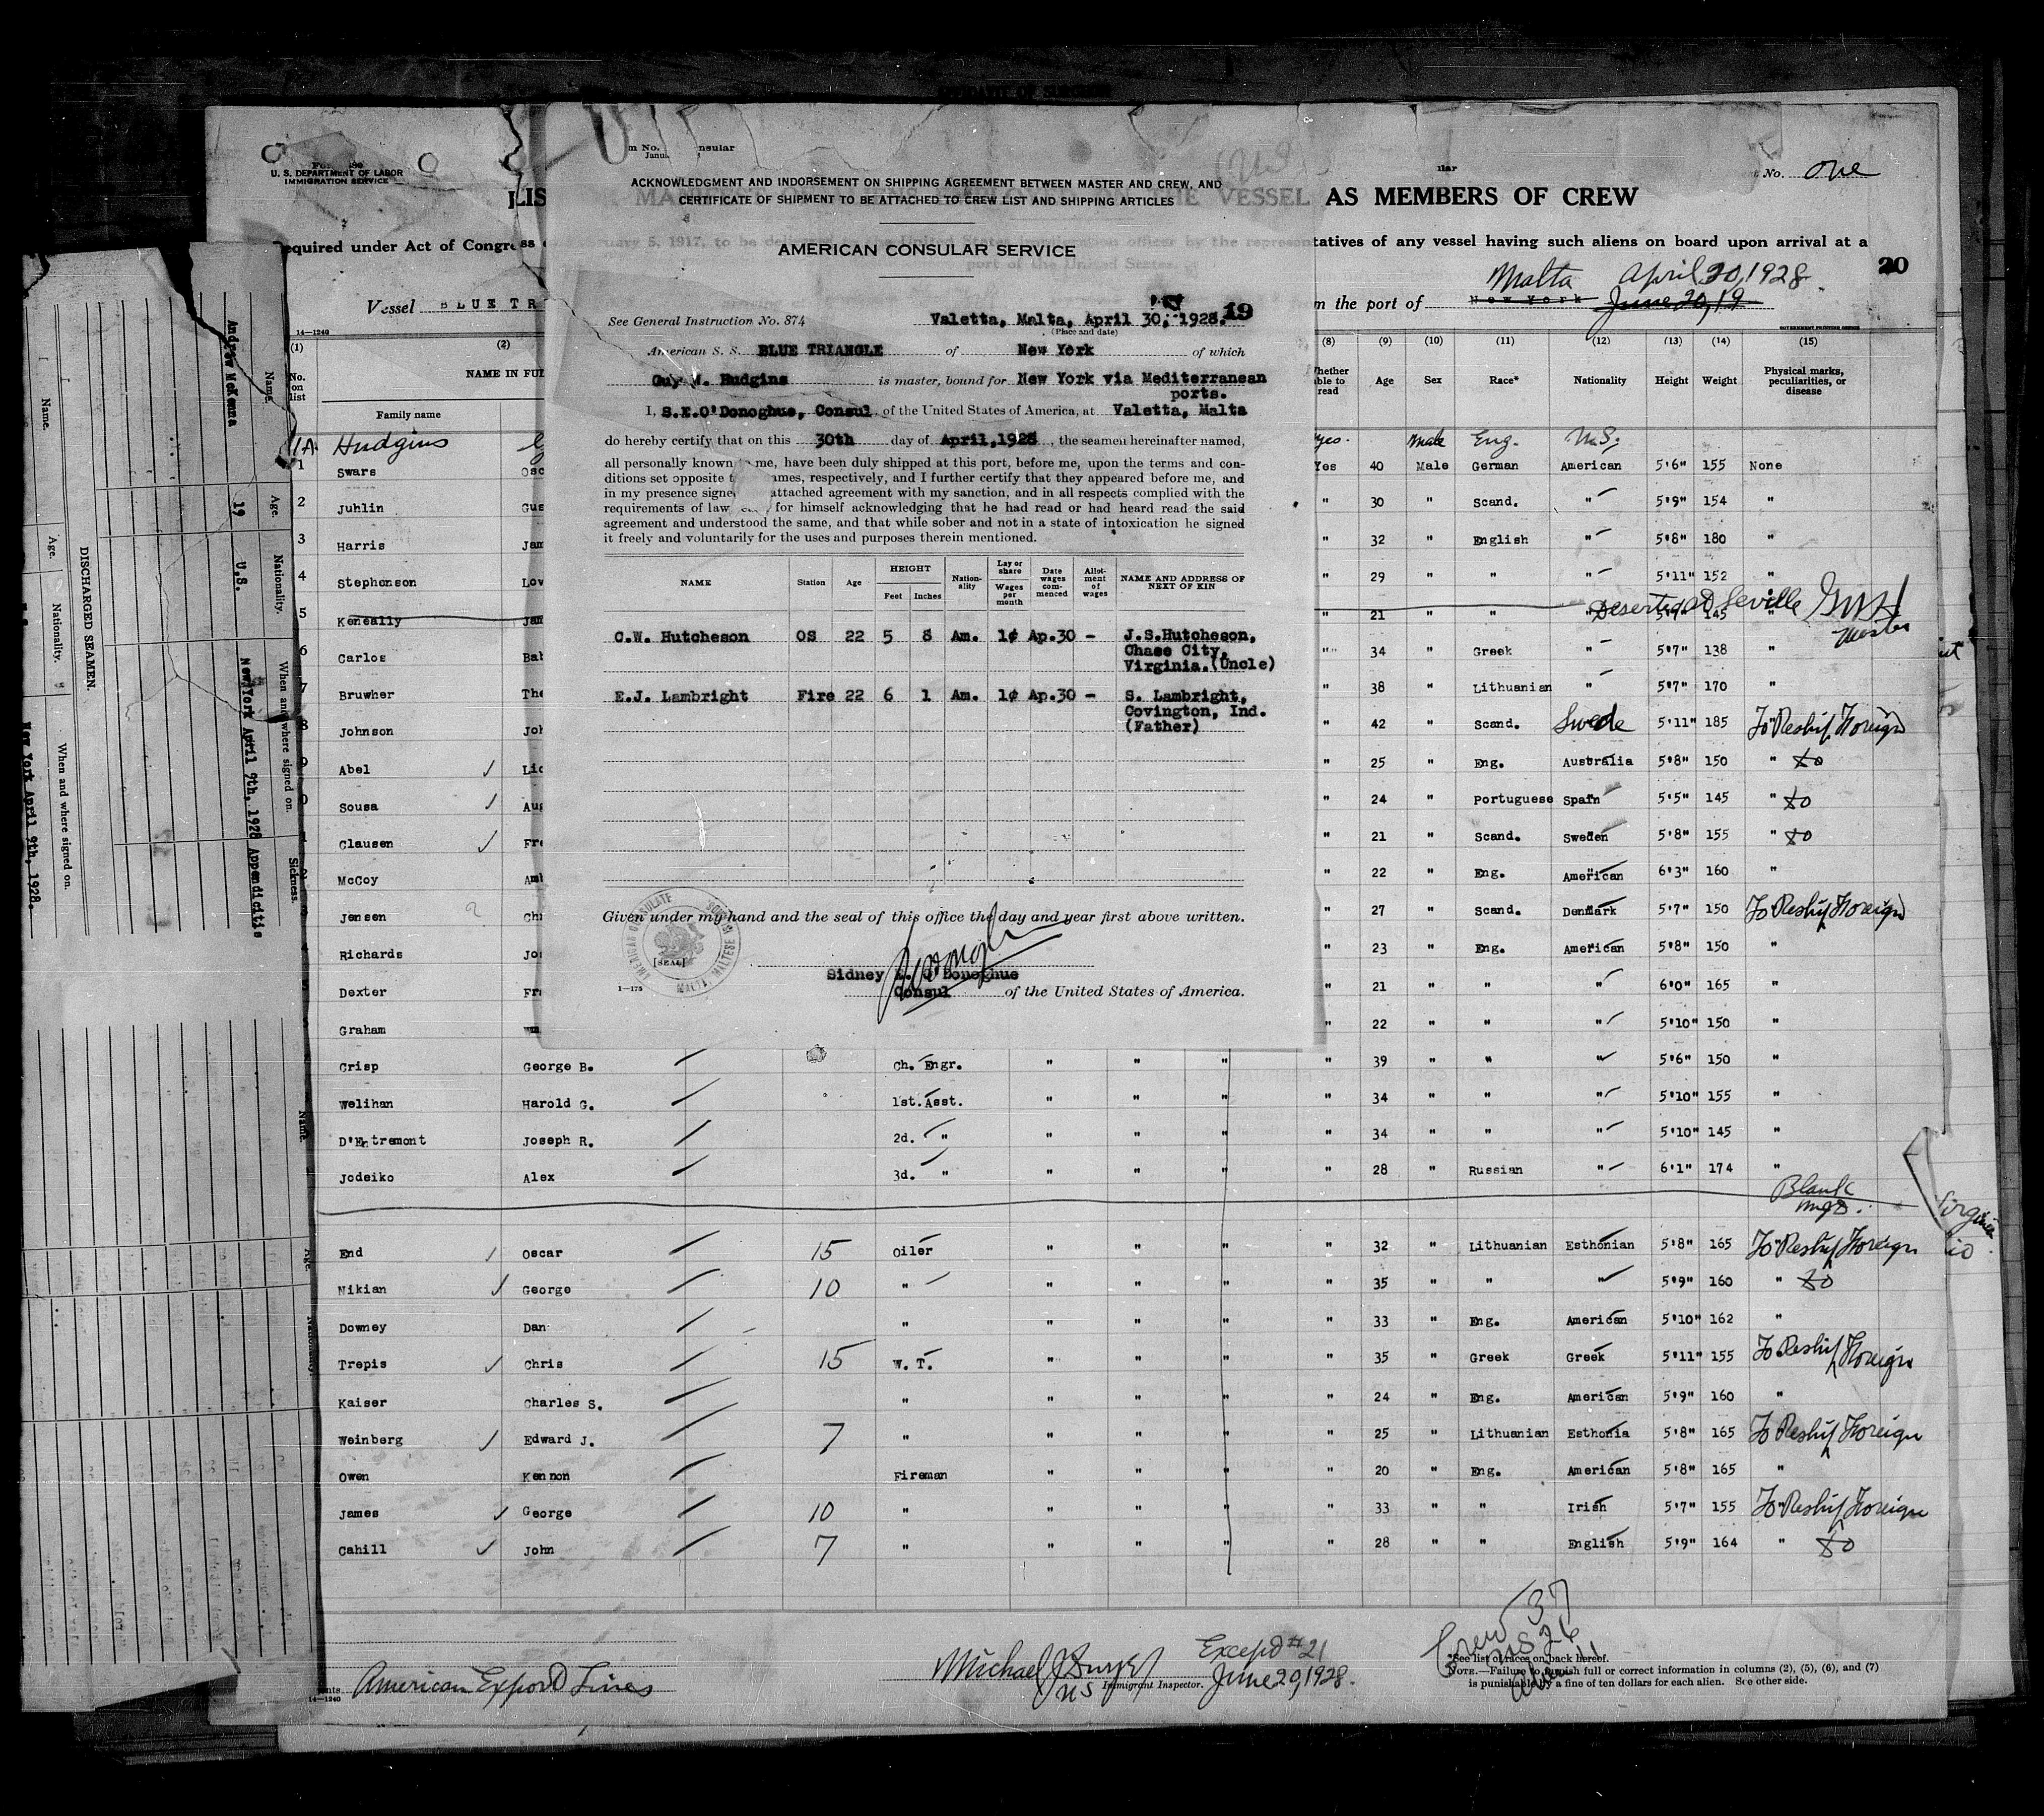 U. S. DEPARTMENT OF LABOR
IMMIGRATION SERVICE
No. one
AS MEMBERS OF CREW
equired under Act of Congress
tatives of any vessel having such aliens on board upon arrival at a
20
Malta April 30, 1928
Vessel BLUE TR
the port of New York June 20, 19
14—1240
GOVERNMENT PRINTING OFFICE
ACKNOWLEDGMENT AND INDORSEMENT ON SHIPPING AGREEMENT BETWEEN MASTER AND CREW, AND
CERTIFICATE OF SHIPMENT TO BE ATTACHED TO CREW LIST AND SHIPPING ARTICLES
AMERICAN CONSULAR SERVICE
19
See General Instruction No. 874 Valetta, Malta, April 30, 1928.
(Place and date)
American S. S. BLUE TRIANGLE of New York of which
Guy W. Hudgins is master, bound for New York via Mediterranean
ports.
I, S.E.O'Donoghue, Consul of the United States of America, at Valetta, Malta
do hereby certify that on this 30th day of April, 1928, the seamen hereinafter named,
all personally known to me, have been duly shipped at this port, before me, upon the terms and con-
ditions set opposite names, respectively, and I further certify that they appeared before me, and
in my presence signe attached agreement with my sanction, and in all respects complied with the
requirements of law, for himself acknowledging that he had read or had heard read the said
agreement and understood the same, and that while sober and not in a state of intoxication he signed
it freely and voluntarily for the uses and purposes therein mentioned.
NAME Station Age HEIGHT Feet Inches Nation-ality Lay or share Wages per month Date wages com-menced Allot-ment of wages NAME AND ADDRESS OF NEXT OF KIN
C.W. Hutcheson OS 22 5 8 Am. 1¢ Ap.30 - J.S.Hutcheson,
Chase City,
Virginia.(Uncle)
E.J. Lambright Fire 22 6 1 Am. 1¢ Ap.30 - S. Lambright,
Covington, Ind.
(Father)
Given under my hand and the seal of this office the day and year first above written.
AMERICAN CONSULATE
MALTA, MALTESE
[SEAL]
Sidney E. O'Donoghue
1—175
Consul of the United States of America.
(1) (2) (8) (9) (10) (11) (12) (13) (14) (15)
No. on list NAME IN FUL Whether able to read Age Sex Race* Nationality Height Weight Physical marks, peculiarities, or disease
Family name
1A Hudgins yes. male Eng. U.S.
1 Swars Osc Yes 40 Male German American 5'6" 155 None
2 Juhlin Gus " 30 " Scand. " 5'9" 154 "
3 Harris Jam " 32 " English " 5'8" 180 "
4 Stephonson Lov " 29 " " " 5'11" 152 "
5 Keneally Jam " 21 " " " 5'7" 145 " Deserted at Seville GWH Master
6 Carlos Bab " 34 " Greek " 5'7" 138 "
7 Bruwher The " 38 " Lithuanian " 5'7" 170 "
8 Johnson Joh " 42 " Scand. Swede 5'11" 185 To Reship Foreign
9 Abel Lio " 25 " Eng. Australia 5'8" 150 " do
0 Sousa Aug " 24 " Portuguese Spain 5'5" 145 " do
1 Clausen Fre " 21 " Scand. Sweden 5'8" 155 " do
McCoy Amb " 22 " Eng. American 6'3" 160 "
Jensen Chr " 27 " Scand. Denmark 5'7" 150 To Reship Foreign
Richards Jos " 23 " Eng. American 5'8" 150 "
Dexter Fra " 21 " " " 6'0" 165 "
Graham Wm " 22 " " " 5'10" 150 "
Crisp George B. Ch. Engr. " " " " 39 " " " 5'6" 150 "
Welihan Harold G. 1st. Asst. " " " " 34 " " " 5'10" 155 "
D'Entremont Joseph R. 2d. " " " " " 34 " " " 5'10" 145 "
Jodeiko Alex 3d. " " " " " 28 " Russian " 6'1" 174 "
Blank
End Oscar 15 Oiler " " " " 32 " Lithuanian Esthonian 5'8" 165 To Reship Foreign
Nikian George 10 " " " " " 35 " " " 5'9" 160 " do
Downey Dan " " " " " 33 " Eng. American 5'10" 162 "
Trepis Chris 15 W. T. " " " " 35 " Greek Greek 5'11" 155 To Reship Foreign
Kaiser Charles S. " " " " " 24 " Eng. American 5'9" 160 "
Weinberg Edward J. 7 " " " " " 25 " Lithuanian Esthonia 5'8" 165 To Reship Foreign
Owen Kennon Fireman " " " " 20 " Eng. American 5'8" 165 "
James George 10 " " " " " 33 " " Irish 5'7" 155 To Reship Foreign
Cahill John 7 " " " " " 28 " " English 5'9" 164 " do
Crew 37
US 26
Alien 11
Except #21
June 20, 1928.
Immigrant Inspector.
American Export Lines
14—1240
*See list of races on back hereof.
NOTE.—Failure to furnish full or correct information in columns (2), (5), (6), and (7)
is punishable by a fine of ten dollars for each alien. See other side.
Name. Age. Nationality. When and where signed on. Sickness.
Andrew McKenna 19 U.S. New York April 9th, 1928 Appendicitis
DISCHARGED SEAMEN.
Name. Age. Nationality. When and where signed on.
New York April 9th, 1928.